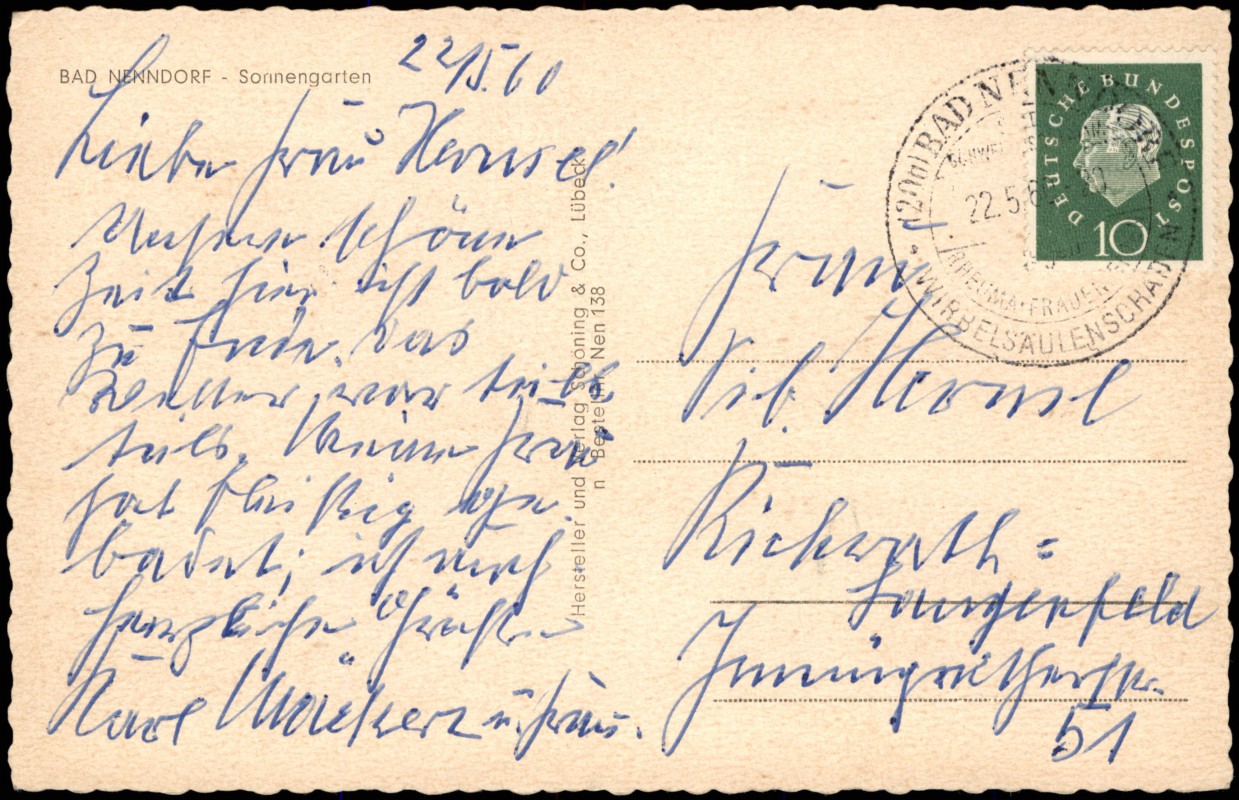 BAD NENNDORF - Sonnengarten
22/5.60
Liebe Frau Hensel!
Unsere schöne
Zeit hier ist bald
zu Ende, das
Wetter war teils
teils. Meine Frau
hat fleißig ge
badet; ich auch
herzliche Grüße
Karl u. Frau.
Hersteller und Verlag Schöning & Co., Lübeck
n Bestell-Nr. Nen 138
Frau
Sib. Hensel
Rickrath =
Langenfeld
51
DEUTSCHE BUNDESPOST
10
(20a) BAD NENNDORF
22.5.60
RHEUMA·FRAUEN
WIRBELSÄULENSCHÄDEN